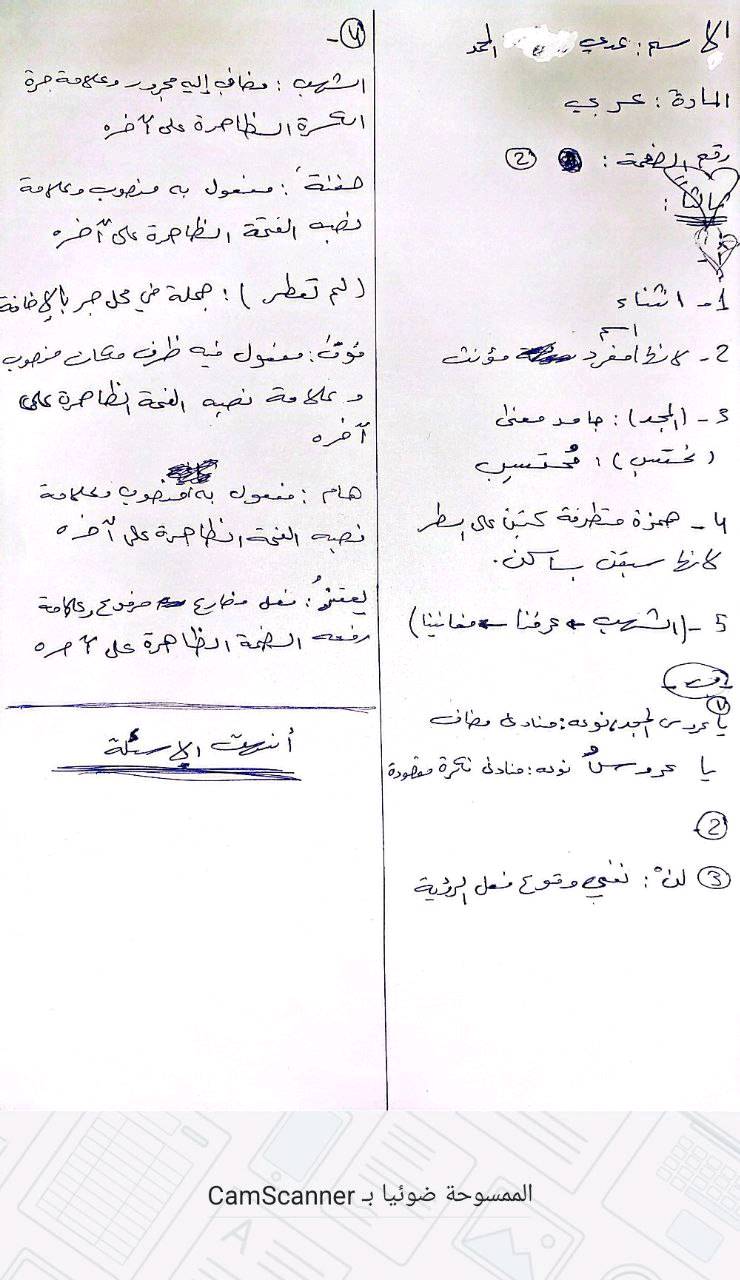 الاسم: عدي المحمد
المادة: عربي
رقم الصفحة: ②
ثالثاً:
1- اثناء
2- لانها اسم مفرد مؤنث
3- (المجد): جامد معنى
(محتسب): مُحتسِب
4- همزة متطرفة كتبت على السطر
لانها سبقت بساكن.
5- (الشهب ← عرفنا ← مغانينا)
① يا عروس المجد، نوعه: منادى مضاف
يا عروسُ نوعه: منادى نكرة مقصودة
② -
③ لنْ: نفي وقوع فعل الرؤية
④ -
الشهب: مضاف إليه مجرور وعلامة جره
الكسرة الظاهرة على آخره
حفنة: مفعول به منصوب وعلامة
نصبه الفتحة الظاهرة على آخره
(لم تعطر): جملة في محل جر بالإضافة
فوقَ: مفعول فيه ظرف مكان منصوب
وعلامة نصبه الفتحة الظاهرة على
آخره
هام: مفعول به منصوب وعلامة
نصبه الفتحة الظاهرة على آخره
فعل مضارع مرفوع وعلامة
رفعه الضمة الظاهرة على آخره
أنتهت الاسئلة
الممسوحة ضوئيا بـ CamScanner